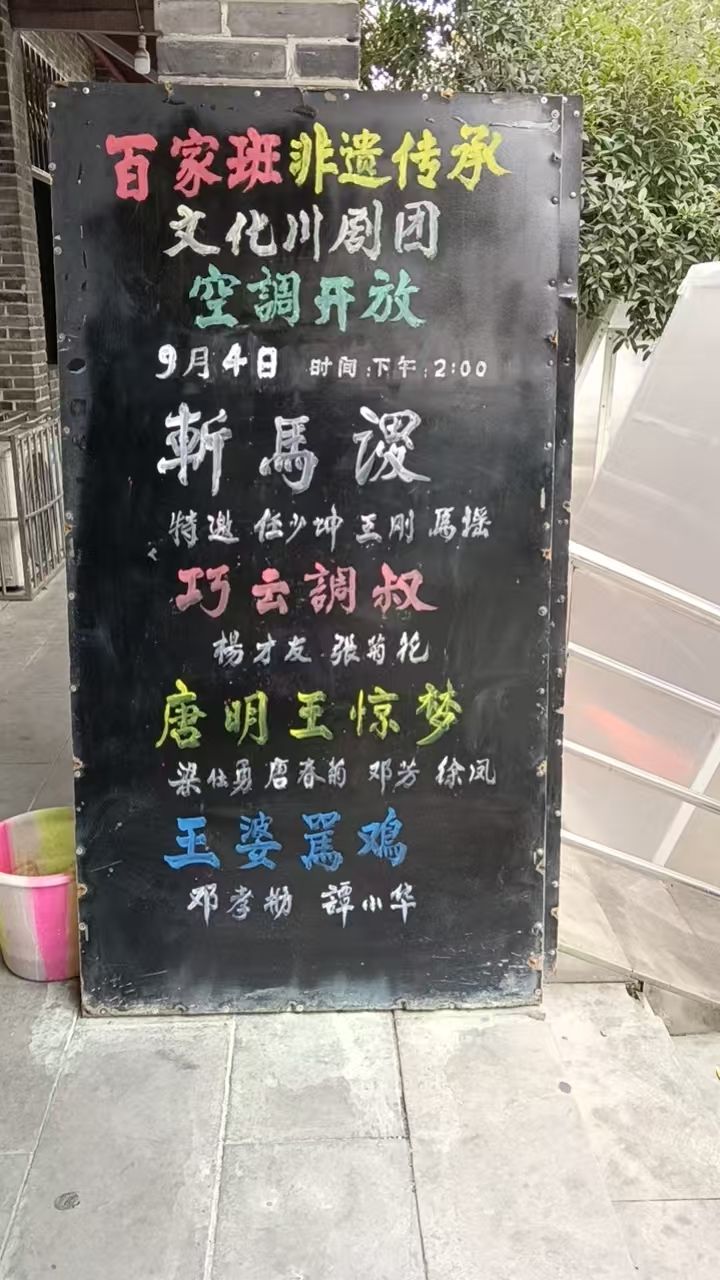 百家班非遗传承
文化川剧团
空調开放
9月4日 时间:下午:2:00
斬馬谡
特邀 任少坤 王刚 馬瑶
巧云調叔
楊才友 張菊花
唐明王惊梦
梁仕勇 唐春菊 邓芳 徐凤
王婆罵鸡
邓孝 譚小华